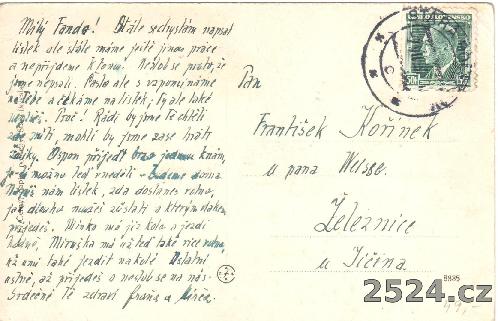 Milý Fando! Stále se chystám napsat
lístek ale stále máme ještě jinou práce
a nepřijdeme k tomu. Nezlob se proto, že
jsme nepsali. Často ale vzpomínáme
na Tebe a čekáme na lístek, Ty ale také
Proč! Rádi by jsme Tě chtěli
zde míti, mohli by jsme zase hráti
Aspon přijeď brzo jednou k nám,
možno teď v neděli - doma
Napiš nám lístek, zda dostaneš volno,
jak dlouho můžeš zůstati a kterým vlakem
přijedeš. Minka má již kolo a jezdí
hodně, Miruška má už teď také více
už umí také jezditi na kole. Ostatní
ústně, až přijedeš a nezlob se na nás.
Srdečně Tě zdraví Fráňa a
Pan
František Kořínek
u pana Weisse.
Železnice
u Jičína
ČESKOSLOVENSKO
50h
8835
2524.cz